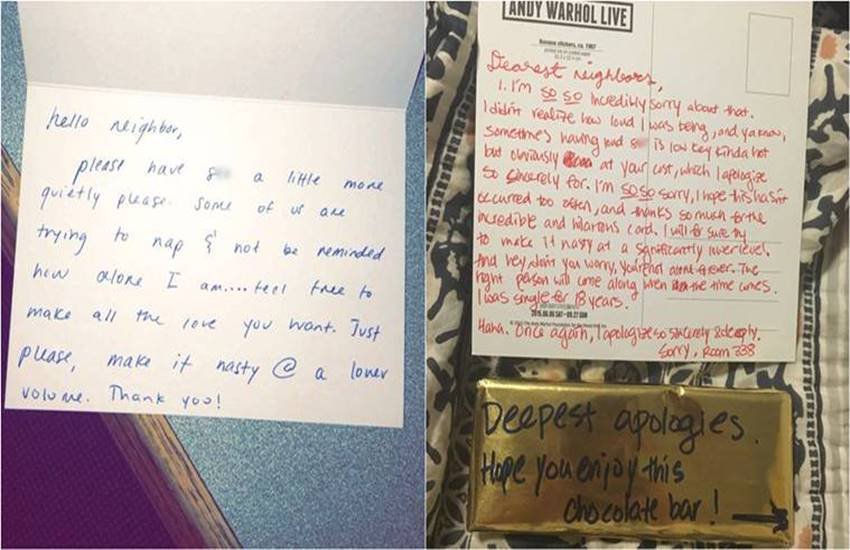 hello neighbor,
please have s a little more
quietly please. Some of us are
trying to nap & not be reminded
how alone I am....feel free to
make all the love you want. Just
please, make it nasty @ a lower
volume. Thank you!
ANDY WARHOL LIVE
Banana stickers, ca. 1967
Dearest neighbors,
1. I'm so so incredibly sorry about that.
I didn't realize how loud I was being, and ya know,
sometimes having loud s is low key kinda hot
but obviously at your cost, which I apologize
so sincerely for. I'm so so sorry, I hope this hasn't
occurred too often, and thanks so much for the
incredible and hilarious card. I will for sure try
to make it nasty at a significantly lower level.
And hey, don't you worry, you're not alone forever. The
right person will come along when the time comes.
I was single for 18 years.
Haha. Once again, I apologize so sincerely & deeply.
Sorry, Room 338
Deepest apologies.
Hope you enjoy this
chocolate bar!